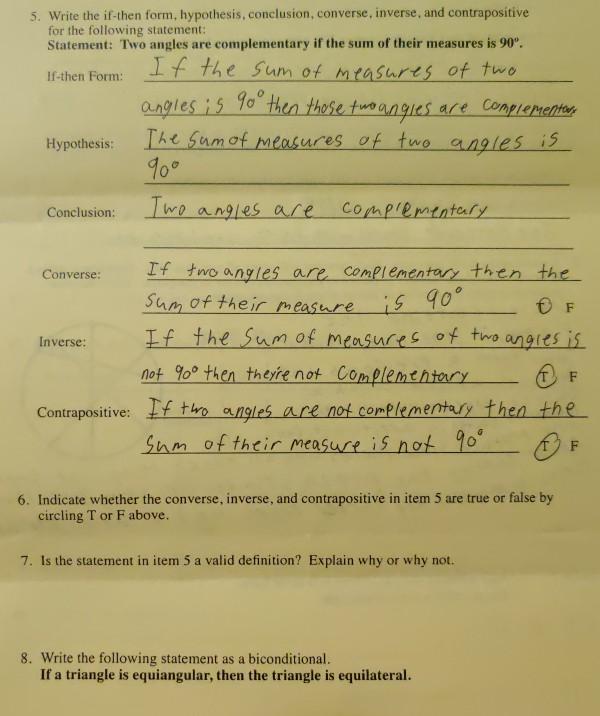 5. Write the if-then form, hypothesis, conclusion, converse, inverse, and contrapositive
for the following statement:
Statement: Two angles are complementary if the sum of their measures is 90°.
If-then Form: If the sum of measures of two
angles is 90° then those two angles are complementary
Hypothesis: The sum of measures of two angles is
90°
Conclusion: Two angles are complementary
Converse: If two angles are complementary then the
sum of their measure is 90° T F
Inverse: If the sum of measures of two angles is
not 90° then they're not complementary T F
Contrapositive: If two angles are not complementary then the
sum of their measure is not 90° T F
6. Indicate whether the converse, inverse, and contrapositive in item 5 are true or false by
circling T or F above.
7. Is the statement in item 5 a valid definition? Explain why or why not.
8. Write the following statement as a biconditional.
If a triangle is equiangular, then the triangle is equilateral.